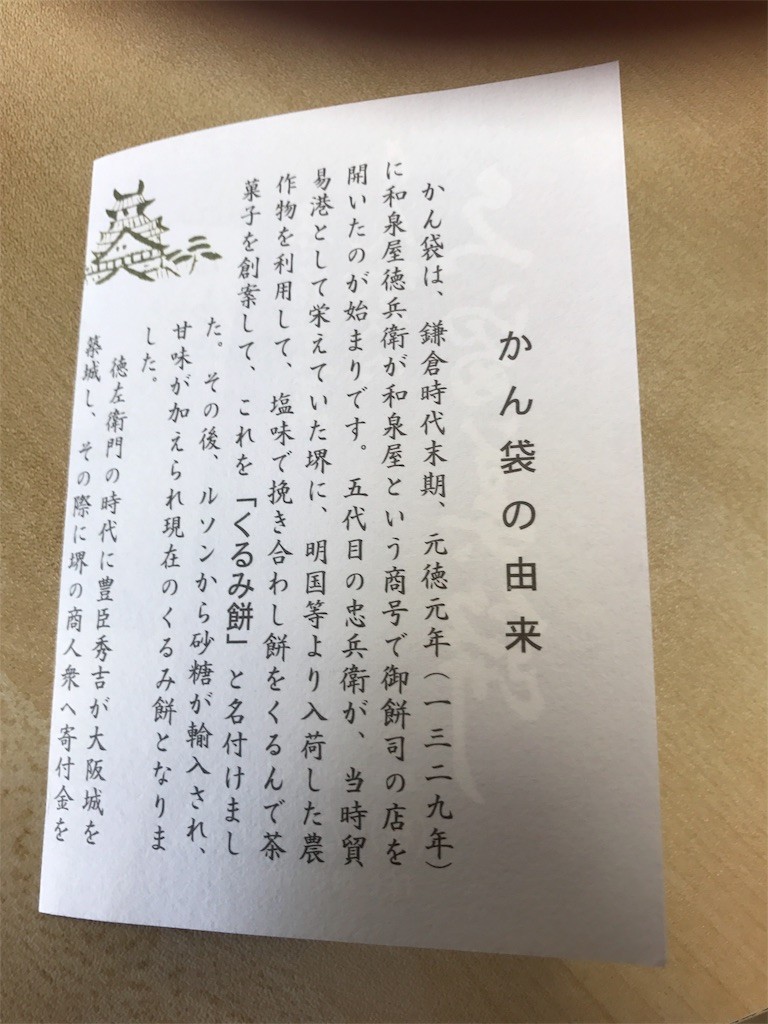 かん袋の由来
かん袋は、鎌倉時代末期、元徳元年(一三二九年)
に和泉屋徳兵衛が和泉屋という商号で御餅司の店を
開いたのが始まりです。五代目の忠兵衛が、当時貿
易港として栄えていた堺に、明国等より入荷した農
作物を利用して、塩味で挽き合わし餅をくるんで茶
菓子を創案して、これを「くるみ餅」と名付けまし
た。その後、ルソンから砂糖が輸入され、
甘味が加えられ現在のくるみ餅となりま
した。
徳左衛門の時代に豊臣秀吉が大阪城を
築城し、その際に堺の商人衆へ寄付金を